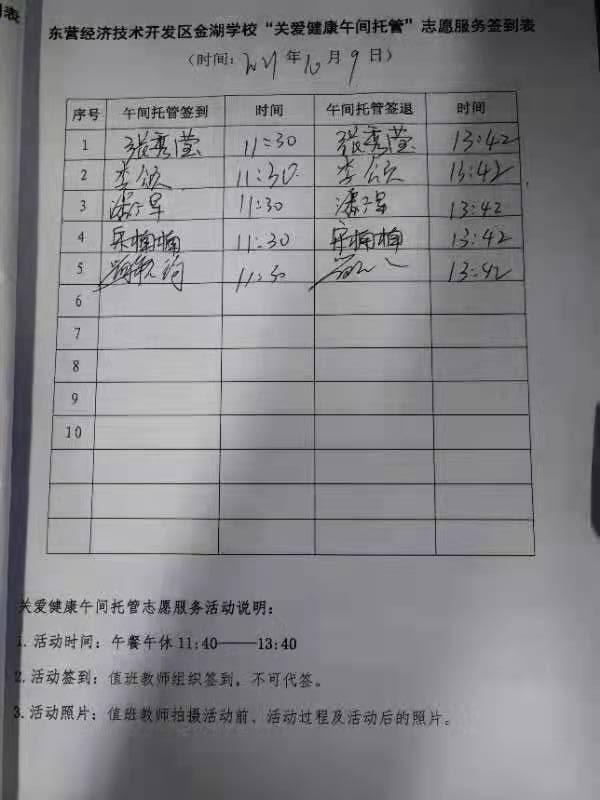 表
东营经济技术开发区金湖学校“关爱健康午间托管”志愿服务签到表
(时间:2021年10月9日)
序号 午间托管签到 时间 午间托管签退 时间
1 张秀莹 11:30 张秀莹 13:42
2 李 11:30 李 13:42
3 潘 11:30 潘 13:42
4 楠楠 11:30 楠楠 13:42
5 11:30 13:42
6
7
8
9
10
关爱健康午间托管志愿服务活动说明:
1.活动时间:午餐午休11:40——13:40
2.活动签到:值班教师组织签到,不可代签。
3.活动照片:值班教师拍摄活动前、活动过程及活动后的照片。